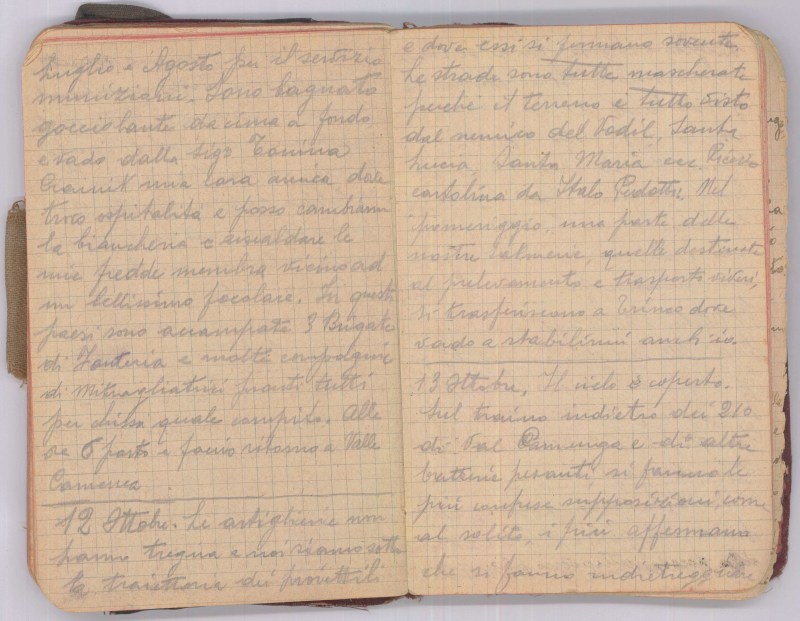 Luglio e Agosto per il servizio
munizioni. Sono bagnato
gocciolante da cima a fondo
e vado dalla Sigra
mia cara amica dove
trovo ospitalità e posso cambiarmi
la biancheria e riscaldare le
mie fredde membra vicino ad
un bellissimo focolare. In questi
paesi sono accampate 3 Brigate
di Fanteria e molte compagnie
di Mitragliatrici pronti tutti
per chissa quale compito. Alle
ore 6 parto e faccio ritorno a Valle
12 Ottobre. Le artiglierie non
hanno tregua e noi siamo sotto
la traiettoria dei proiettili
e dove essi si fermano sovente.
Le strade sono tutte mascherate
perche il terreno e tutto visto
dal nemico del Vodil, Santa
Lucia, Santa Maria ecc. Ricevo
cartolina da Italo. Nel
pomeriggio, una parte delle
nostre salmerie, quelle destinate
al prelevamento e trasporto viveri,
si trasferiscono a Trinco dove
vado a stabilirmi anch'io.
13 Ottobre. Il cielo è coperto.
Sul traino indietro dei 210
di Val e di altre
batterie pesanti, si fanno le
più confuse supposizioni, come
al solito, i più affermano
che si fanno indietreggiare